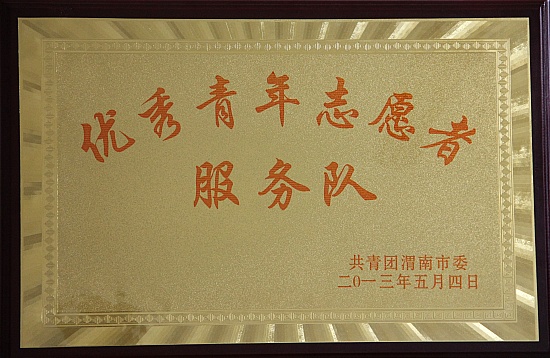 优秀青年志愿者
服务队
共青团渭南市委
二〇一三年五月四日